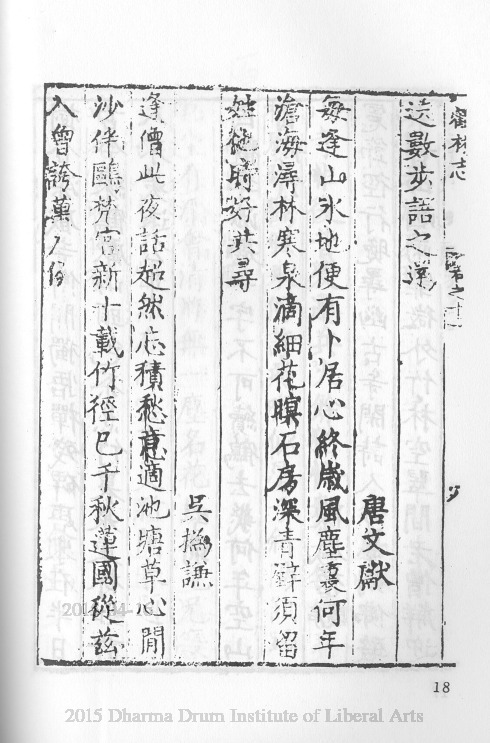 林志
數步語之
唐文獻
每逢山水地便有卜居心終歲風塵裏何年
滄海潯林寒泉滴細花暝石房深青須留
姓他時好共尋
吳撫謙
逢僧此夜話超然忘積愁意適池塘草心閒
沙伴鷗梵宮新十載竹徑已千秋蓮國從茲
入曾誇萬
18
2015 Dharma Drum Institute of Liberal Arts